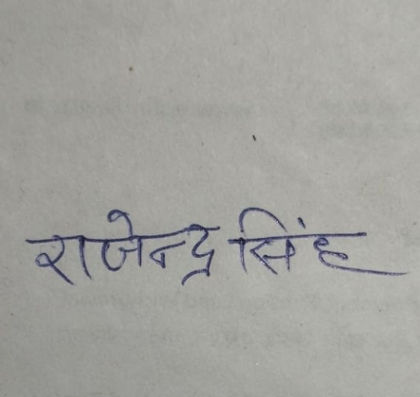 राजेन्द्र सिंह